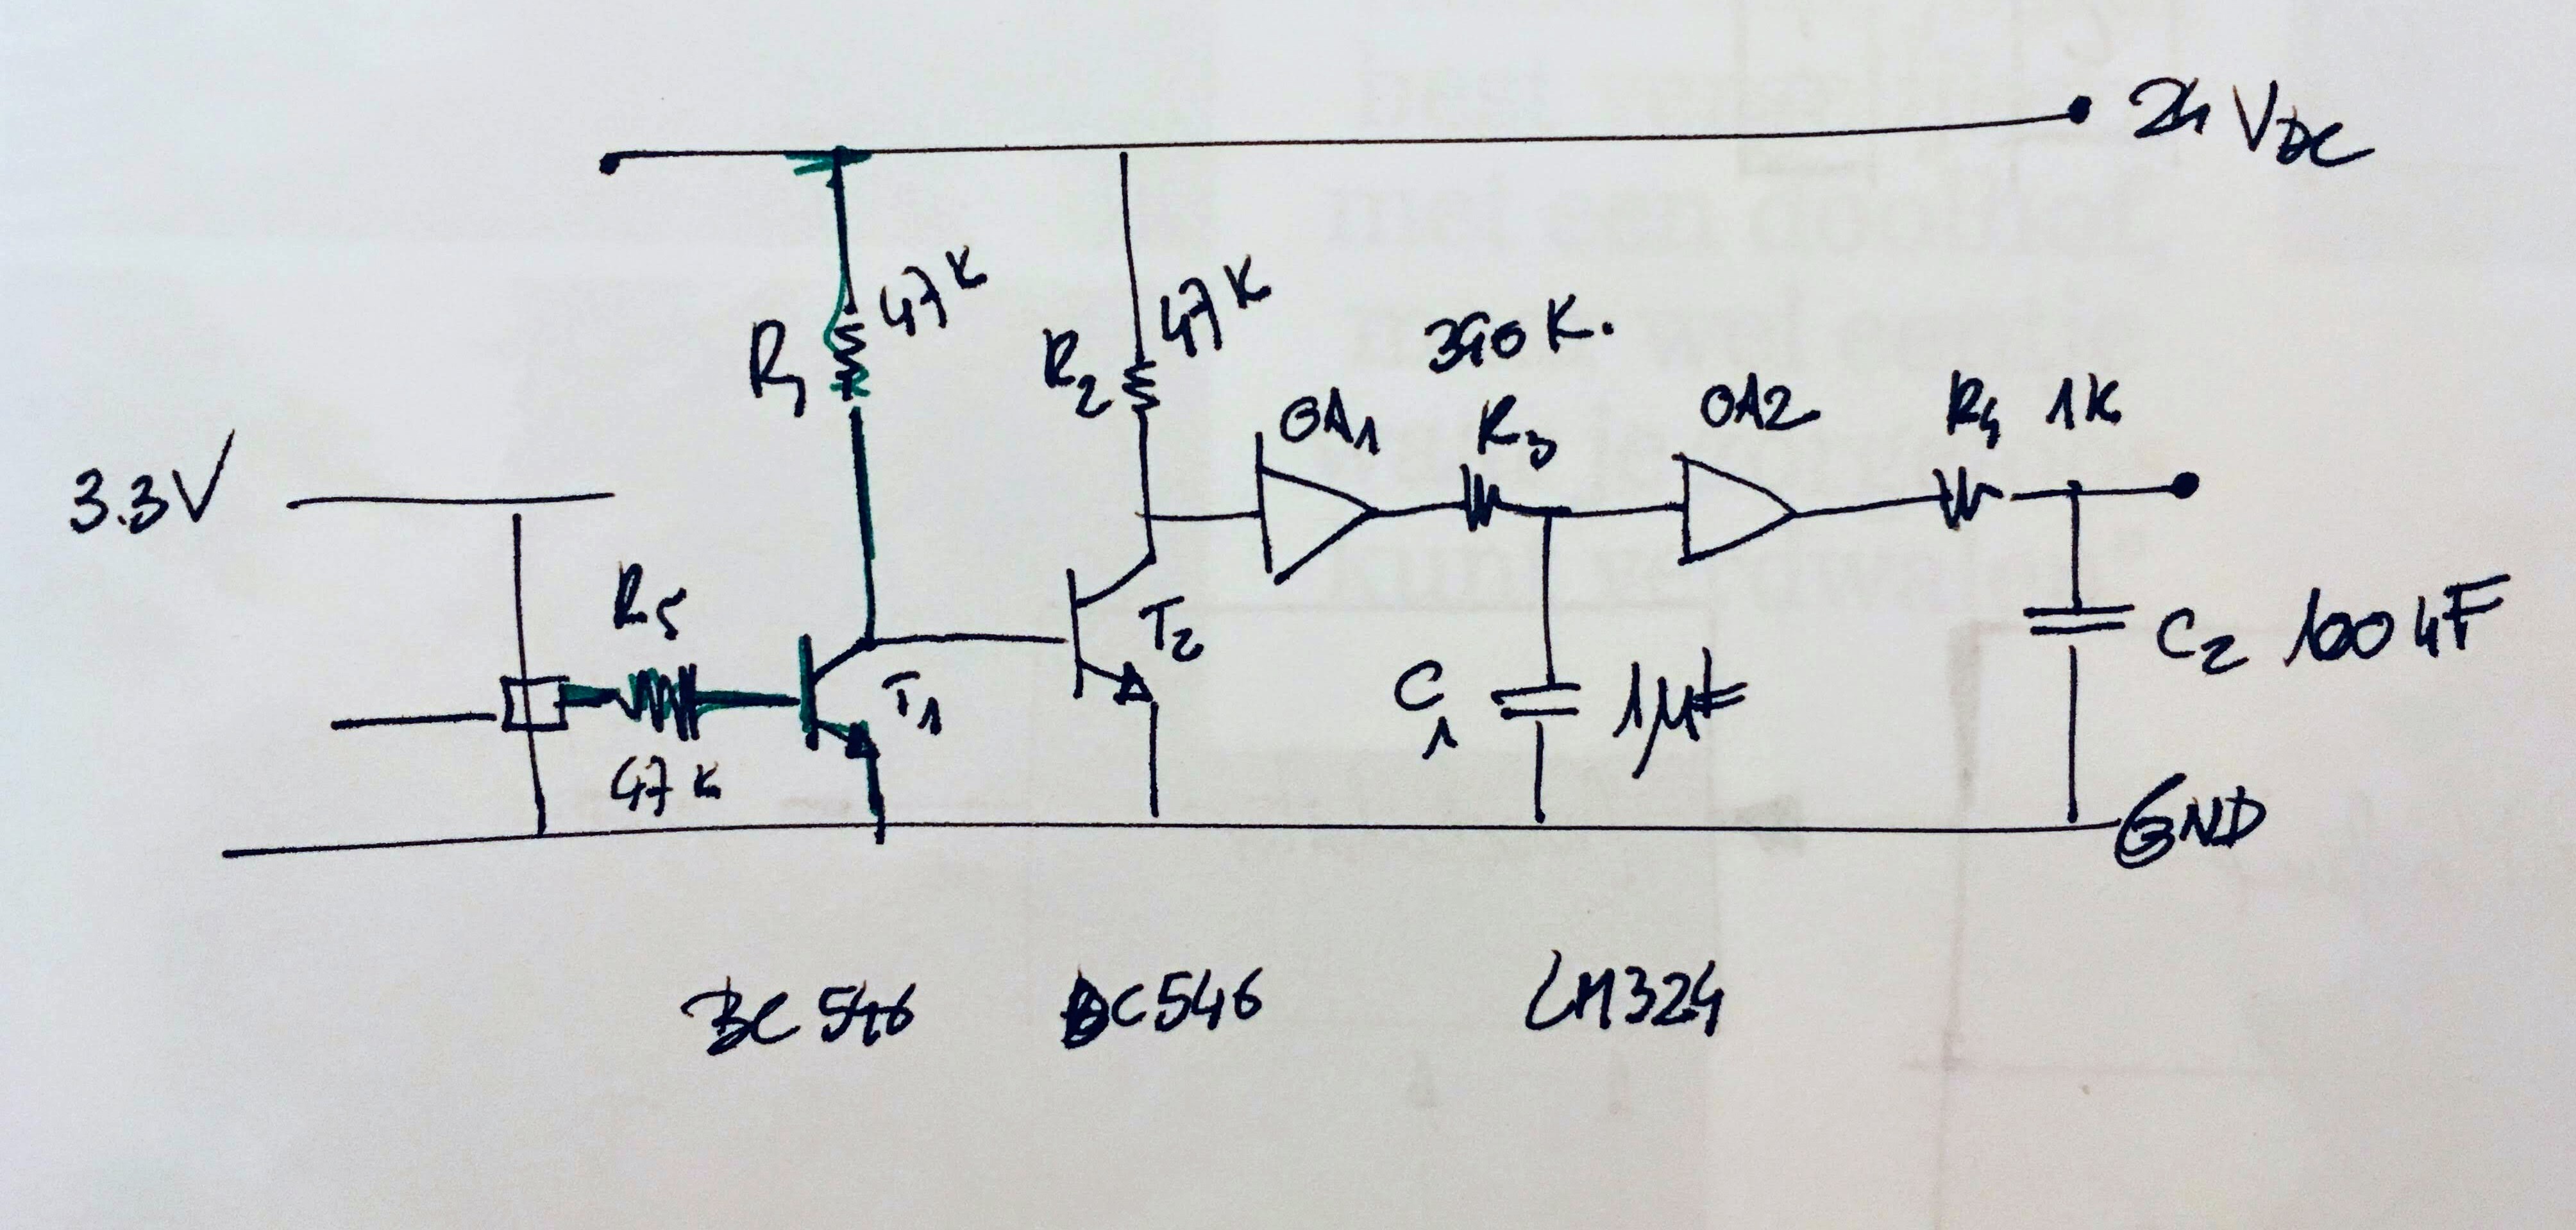 24 VDC
47K
47K
R1
R2
390K.
OA1
R3
OA2
R4 1K
3.3V
R5
47K
T1
T2
C1
1µF
C2 100µF
GND
BC546
BC546
LM324